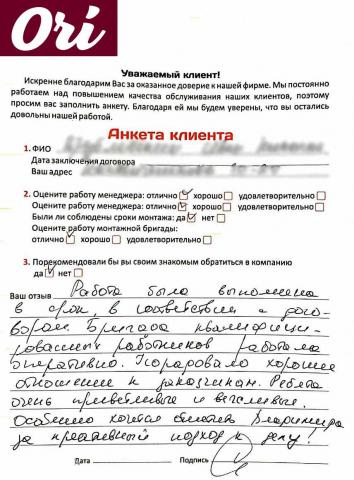 Ori
Уважаемый клиент!
Искренне благодарим Вас за оказанное доверие к нашей фирме. Мы постоянно
работаем над повышением качества обслуживания наших клиентов, поэтому
просим вас заполнить анкету. Благодаря ей мы будем уверены, что вы остались
довольны нашей работой.
Анкета клиента
1. ФИО
Дата заключения договора
Ваш адрес
2. Оцените работу менеджера: отлично хорошо удовлетворительно
Оцените работу менеджера: отлично хорошо удовлетворительно
Были ли соблюдены сроки монтажа: да нет
Оцените работу монтажной бригады:
отлично хорошо удовлетворительно
3. Порекомендовали бы вы своим знакомым обратиться в компанию
да нет
Ваш отзыв Работа была выполнена
в срок, в соответствии с дого-
вором. Бригада квалифици-
рованных работников работала
оперативно. Порадовало хорошее
отношение к заказчикам. Ребята
очень приветливые и вежливые.
Особенно хочется отметить Владимира
за креативный подход к делу!
Дата Подпись